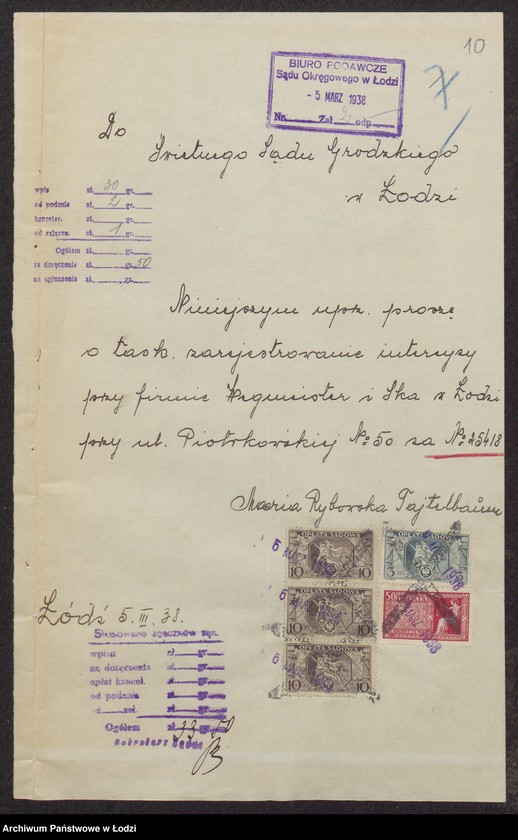 10
BIURO PODAWCZE
Sądu Okręgowego w Łodzi
- 5 MARZ 1938
Nr. Zał 2 odp
7
Do
Świetnego Sądu Grodzkiego
w Łodzi
wpis zł. 30 gr.
od podania zł. 2 gr.
kancelar. zł. gr.
od załącz. zł. 1 gr.
Ogółem zł. gr.
za doręczenie zł. gr. 50
na ogłoszenie zł. gr.
Niniejszym upz. proszę
o łask. zarejestrowanie intercyzy
przy firmie i Ska w Łodzi
przy ul. Piotrkowskiej № 50 za № 25418
Maria Rybowska Tajtelbaum
OPŁATA SĄDOWA
10 10
OPŁATA SĄDOWA
3
OPŁATA SĄDOWA
10 10
50
OPŁATA SĄDOWA
10 10
Łódź 5. III. 38.
wpisu zł gr.
na doręczenie zł gr.
opłat kancel. zł gr.
od podania zł gr.
od zał. zł gr.
Ogółem zł 33 gr. 50
Archiwum Państwowe w Łodzi